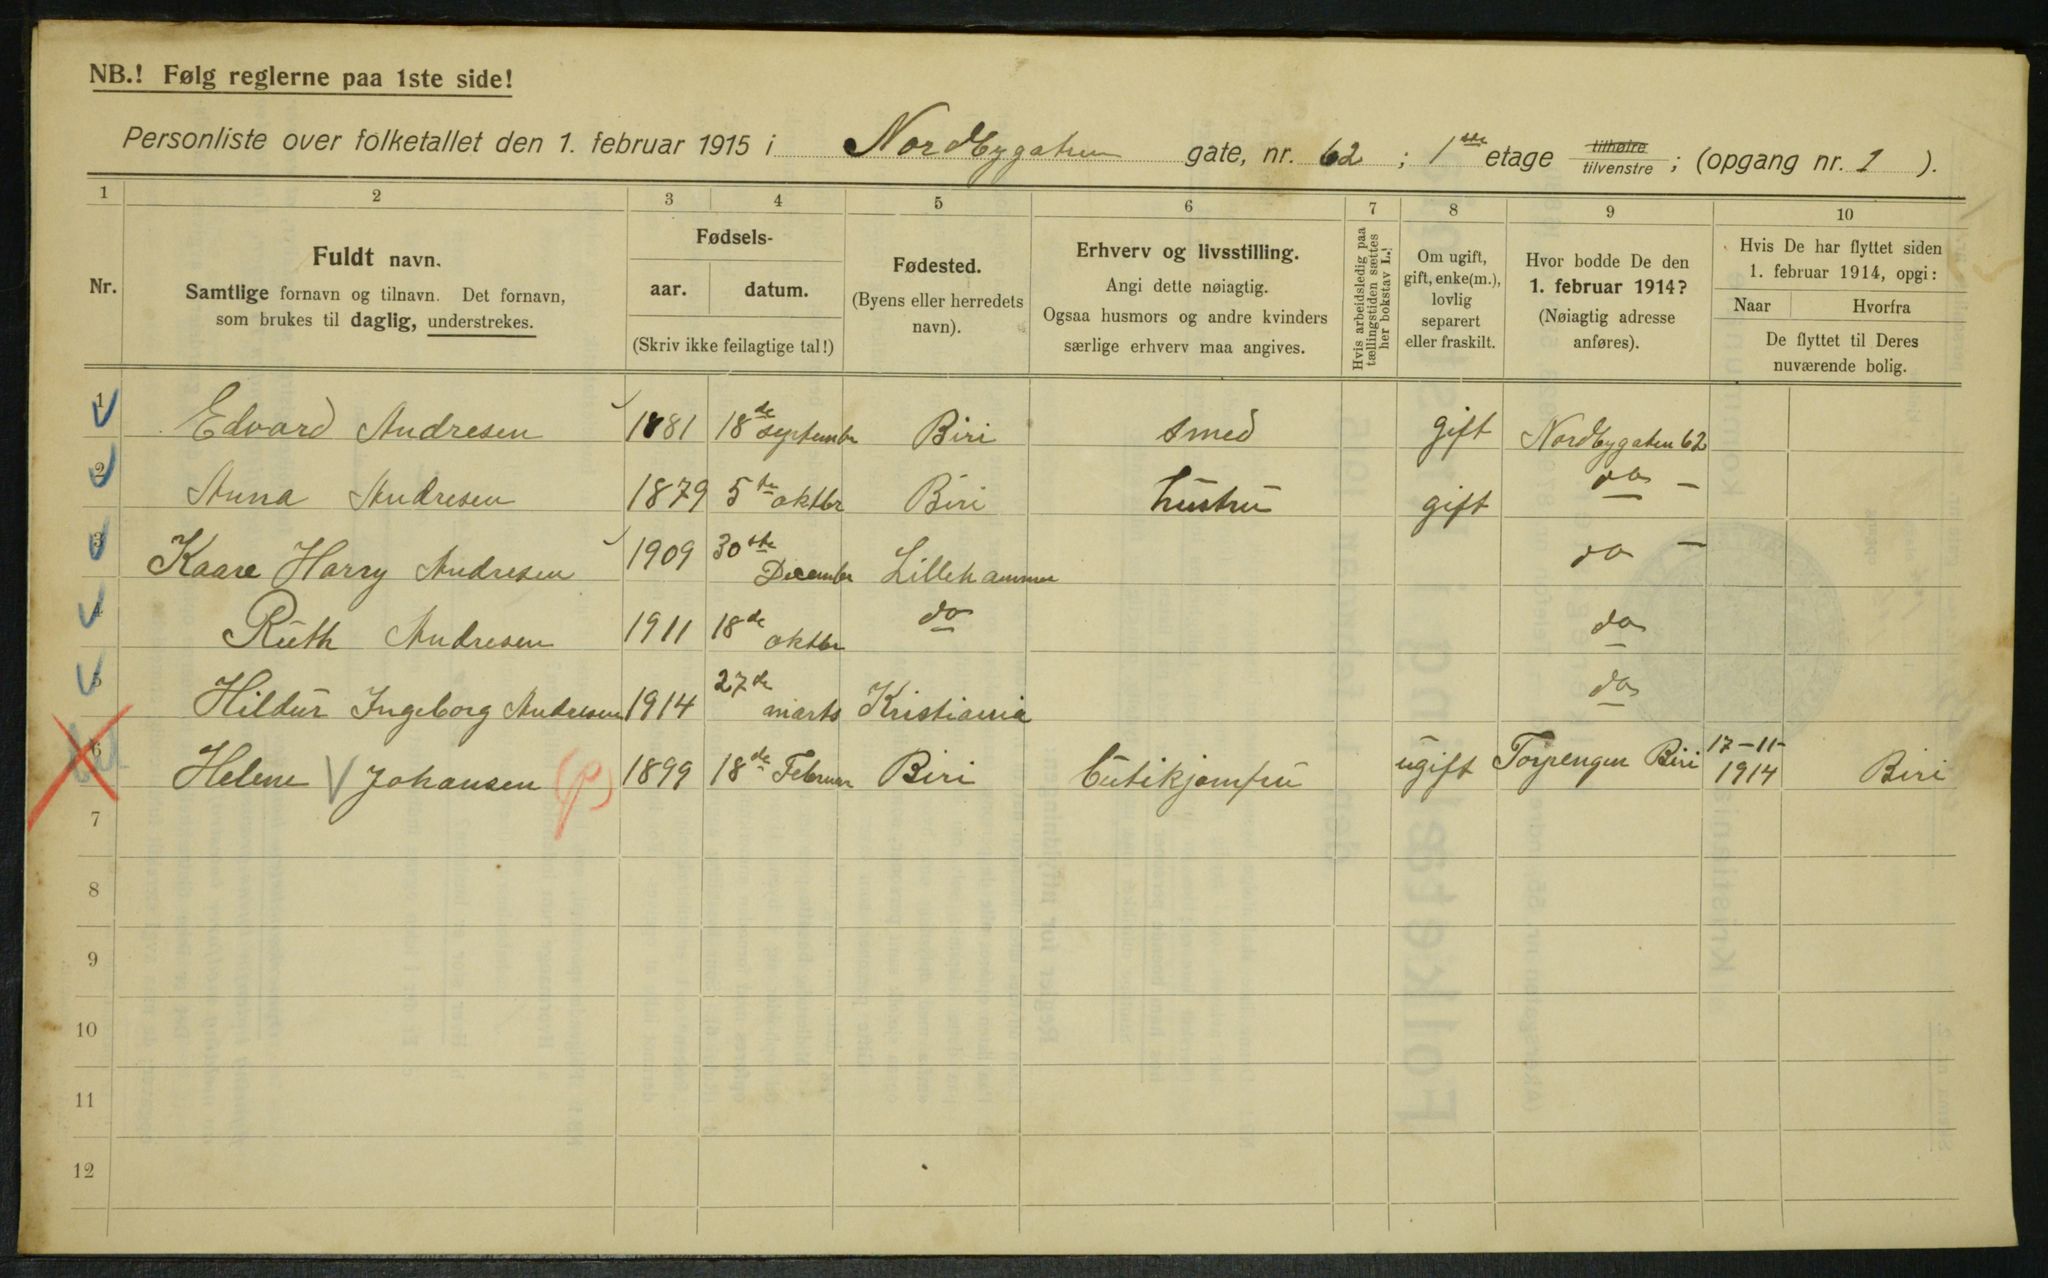 NB.! Følg reglerne paa 1ste side!
Personliste over folketallet den 1. februar 1915 i Nordbygaten gate, nr. 62 ; 1ste etage tilhøire tilvenstre ; (opgang nr. 1 ).
1 2 3 4 5 6 7 8 9 10
Nr.
Fuldt navn.
Samtlige fornavn og tilnavn. Det fornavn,
som brukes til daglig, understrekes.
Fødsels-
aar. datum.
(Skriv ikke feilagtige tal!)
Fødested.
(Byens eller herredets
navn).
Erhverv og livsstilling.
Angi dette nøiagtig.
Ogsaa husmors og andre kvinders
særlige erhverv maa angives.
Hvis arbeidsledig paa
tællingstiden sættes
her bokstav L.!
Om ugift,
gift, enke(m.),
lovlig
separert
eller fraskilt.
Hvor bodde De den
1. februar 1914?
(Nøiagtig adresse
anføres).
Hvis De har flyttet siden
1. februar 1914, opgi:
Naar Hvorfra
De flyttet til Deres
nuværende bolig.
1 Edvard Andresen 1881 18de september Biri smed gift Nordbygaten 62
2 Anna Andresen 1879 5te oktbr Biri hustru gift do –
3 Kaare Harry Andresen 1909 30te December Lillehammer do –
4 Ruth Andresen 1911 18de oktbr do do
5 Hildur Ingeborg Andresen 1914 27de marts Kristiania do
6 Helene Johansen (p) 1899 18de Februar Biri Butikjomfru ugift Torpengen Biri 17-11-1914 Biri
7
8
9
10
11
12